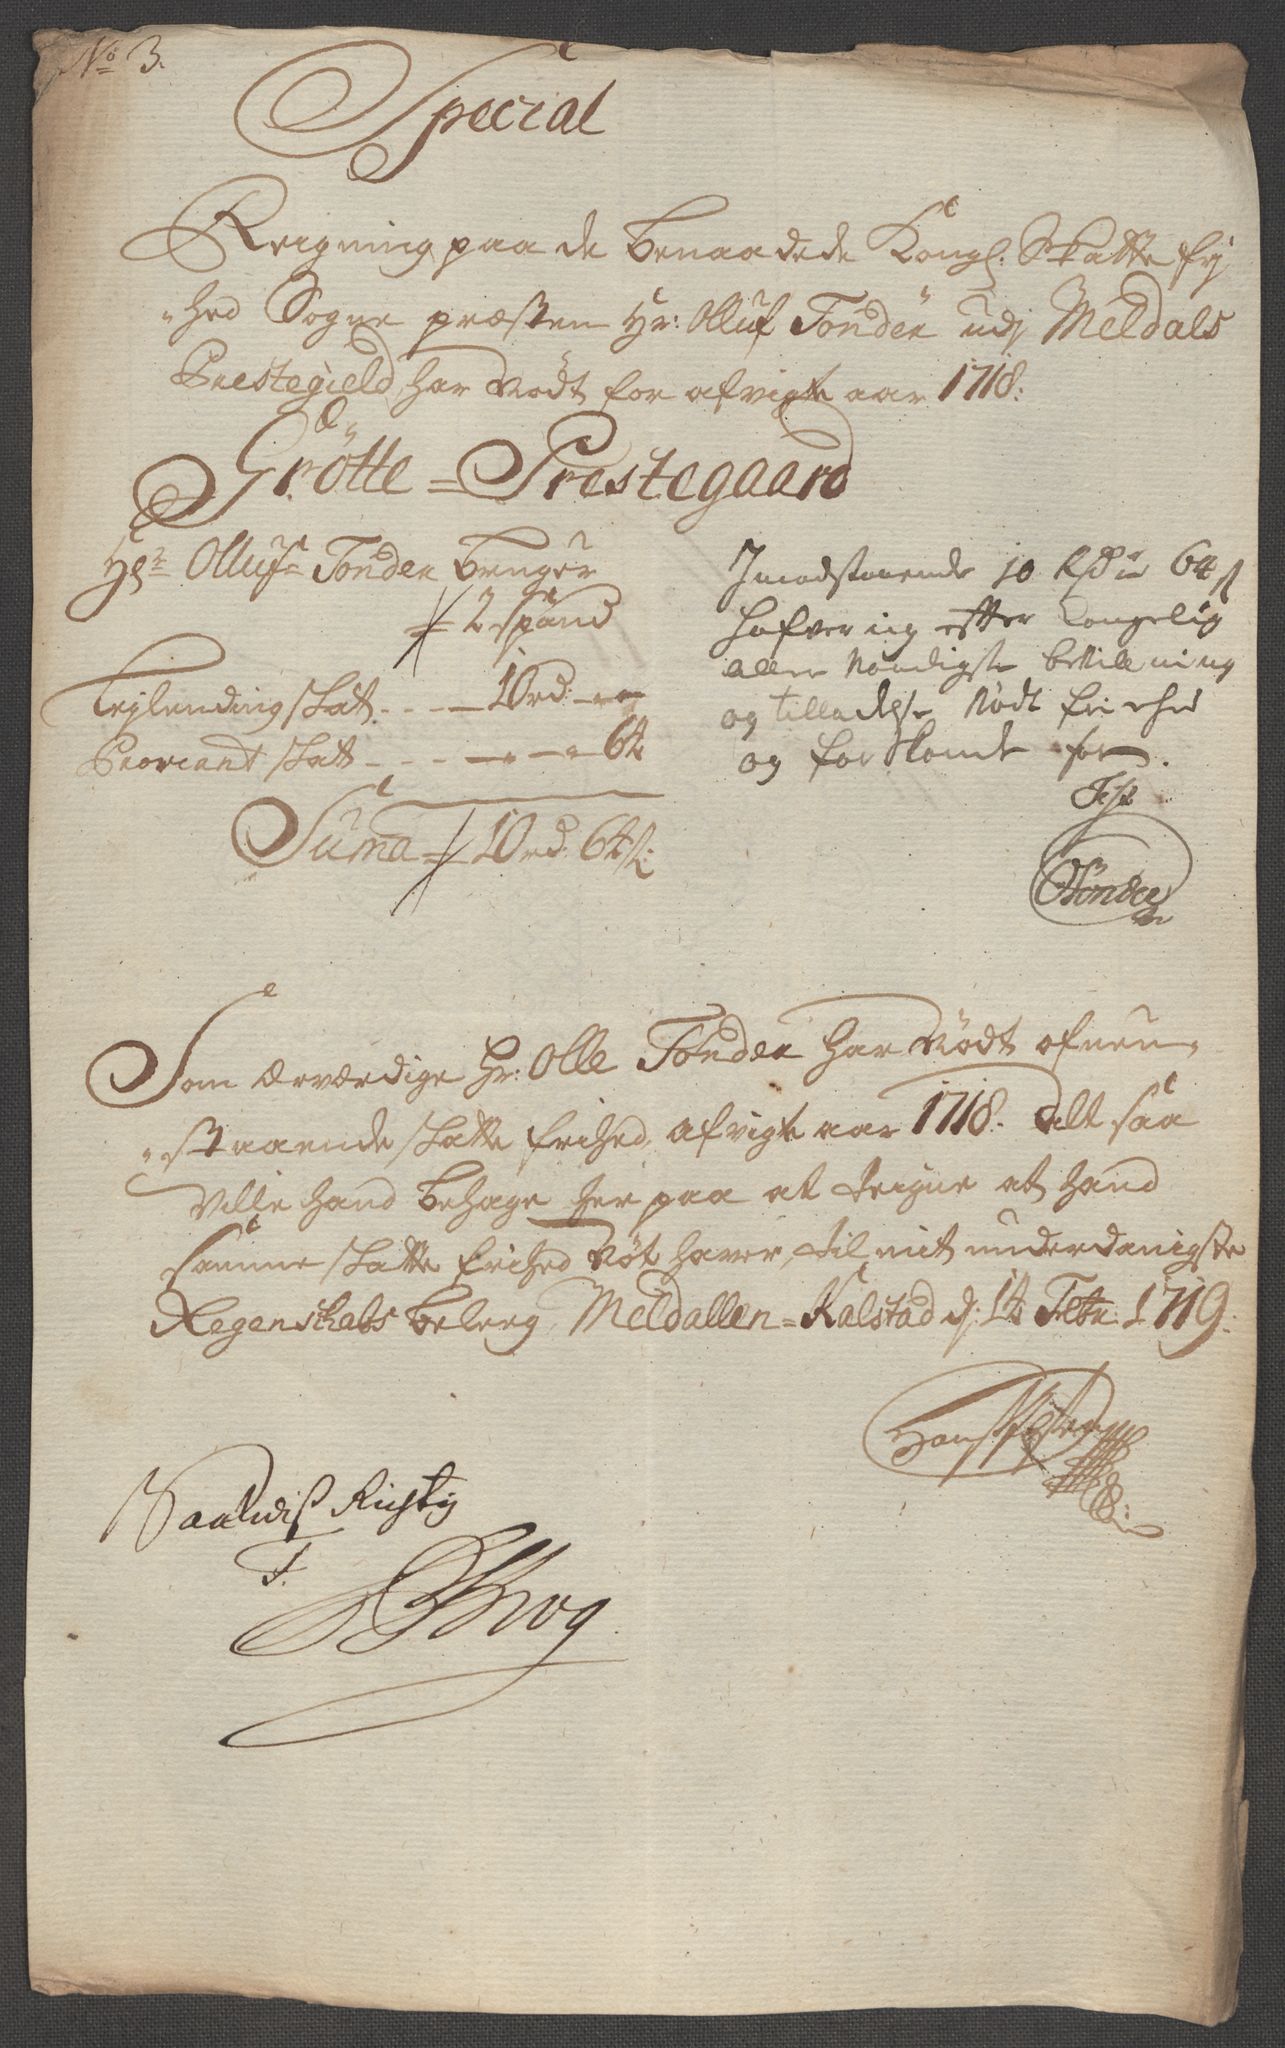 No 3.
Special
Reigning paa de Benaadede Kongl: Skatte frj
hed Sogne præsten Hr: Olluf Tonder udj Meldals
Prestegield har Nødt for afvigte aar 1718:
Grøtte = Prestegaard
Hr Olluf Tonder Bruger
2 spand
Leylending skat - - - 10 rd: - -
Proviant skat - - - - - 64
Suma 10 rd: 64 s:
Imodstaaende 10 Rdr 64 s
hafver ieg efter Kongelig
aller Naadigste bevillning
og tilladelse Nødt friehed
og forskaant for.
Test
OTonder
Som ærværdige Hr: Olle Tonder har Nødt ofnen
staaende skatte frihed afvigte aar 1718. alt saa
Ville hand behage her paa at teigne at hand
samme skatte frihed Nøt haver, til mit underdanigste
Regenskabs beleeg, Meldallen = Kalstad d: 14 Febr: 1719:
Hans
Saaledis Rigtig
T.